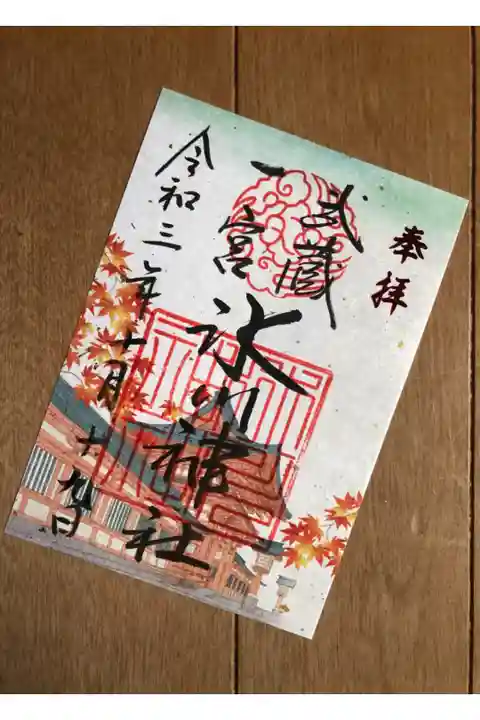 奉拝
武蔵
一宮
氷川神社
令和三年十月
十九日